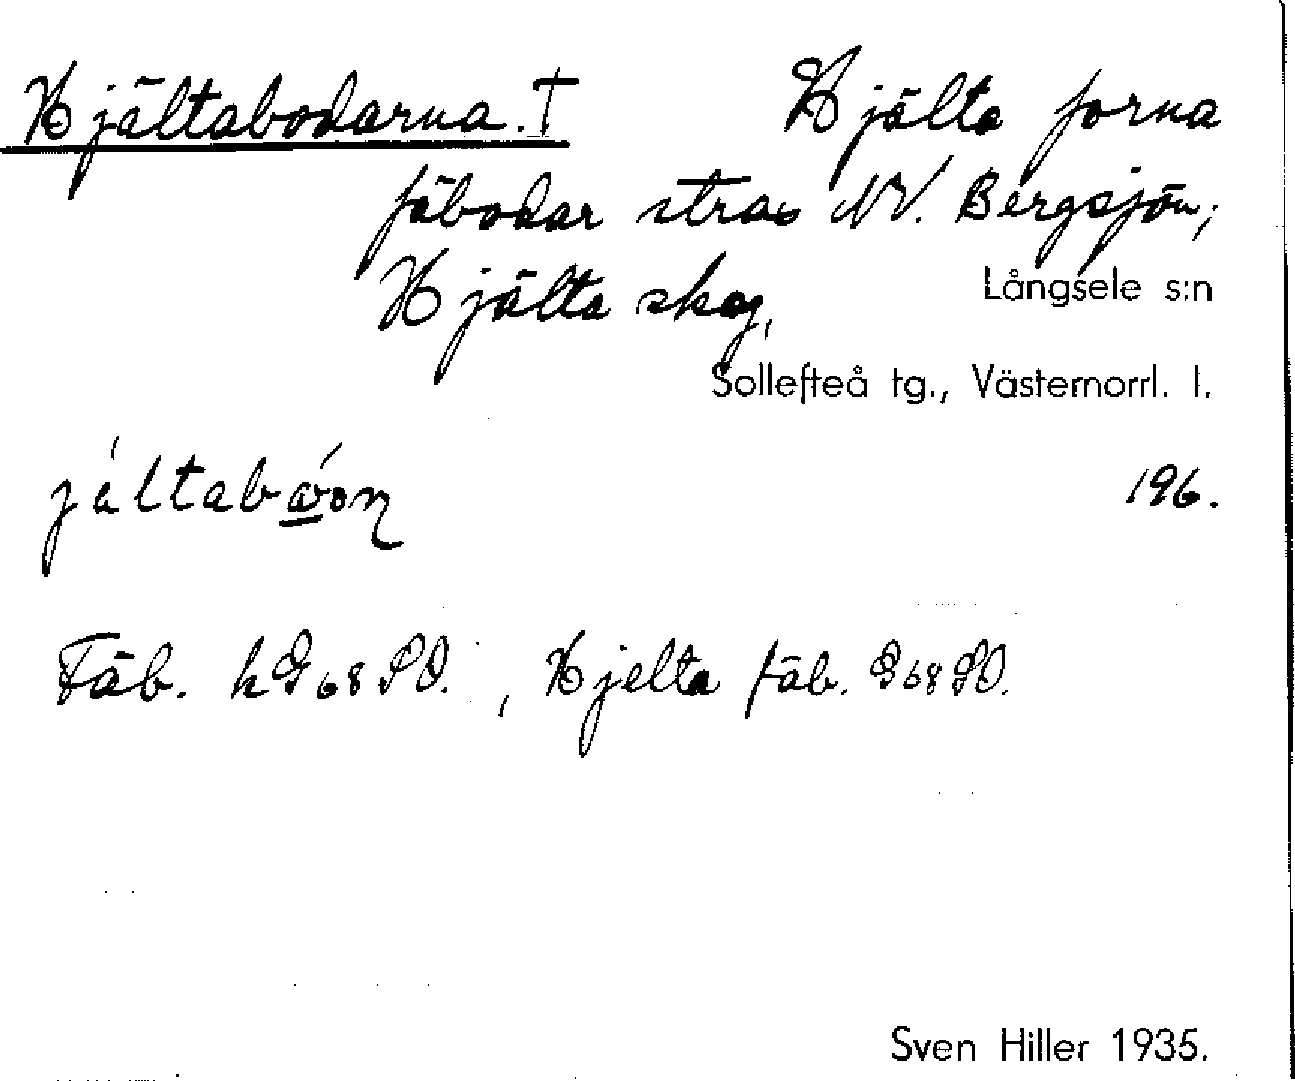 Hjältabodarna. † Hjälta forna
fäbodar strax NV. Bergsjön;
Hjälta skog,
Långsele s:n
Sollefteå tg., Västernorrl. l.
196.
Fäb. hG68SO., Hjelta fäb. G68SO.
Sven Hiller 1935.